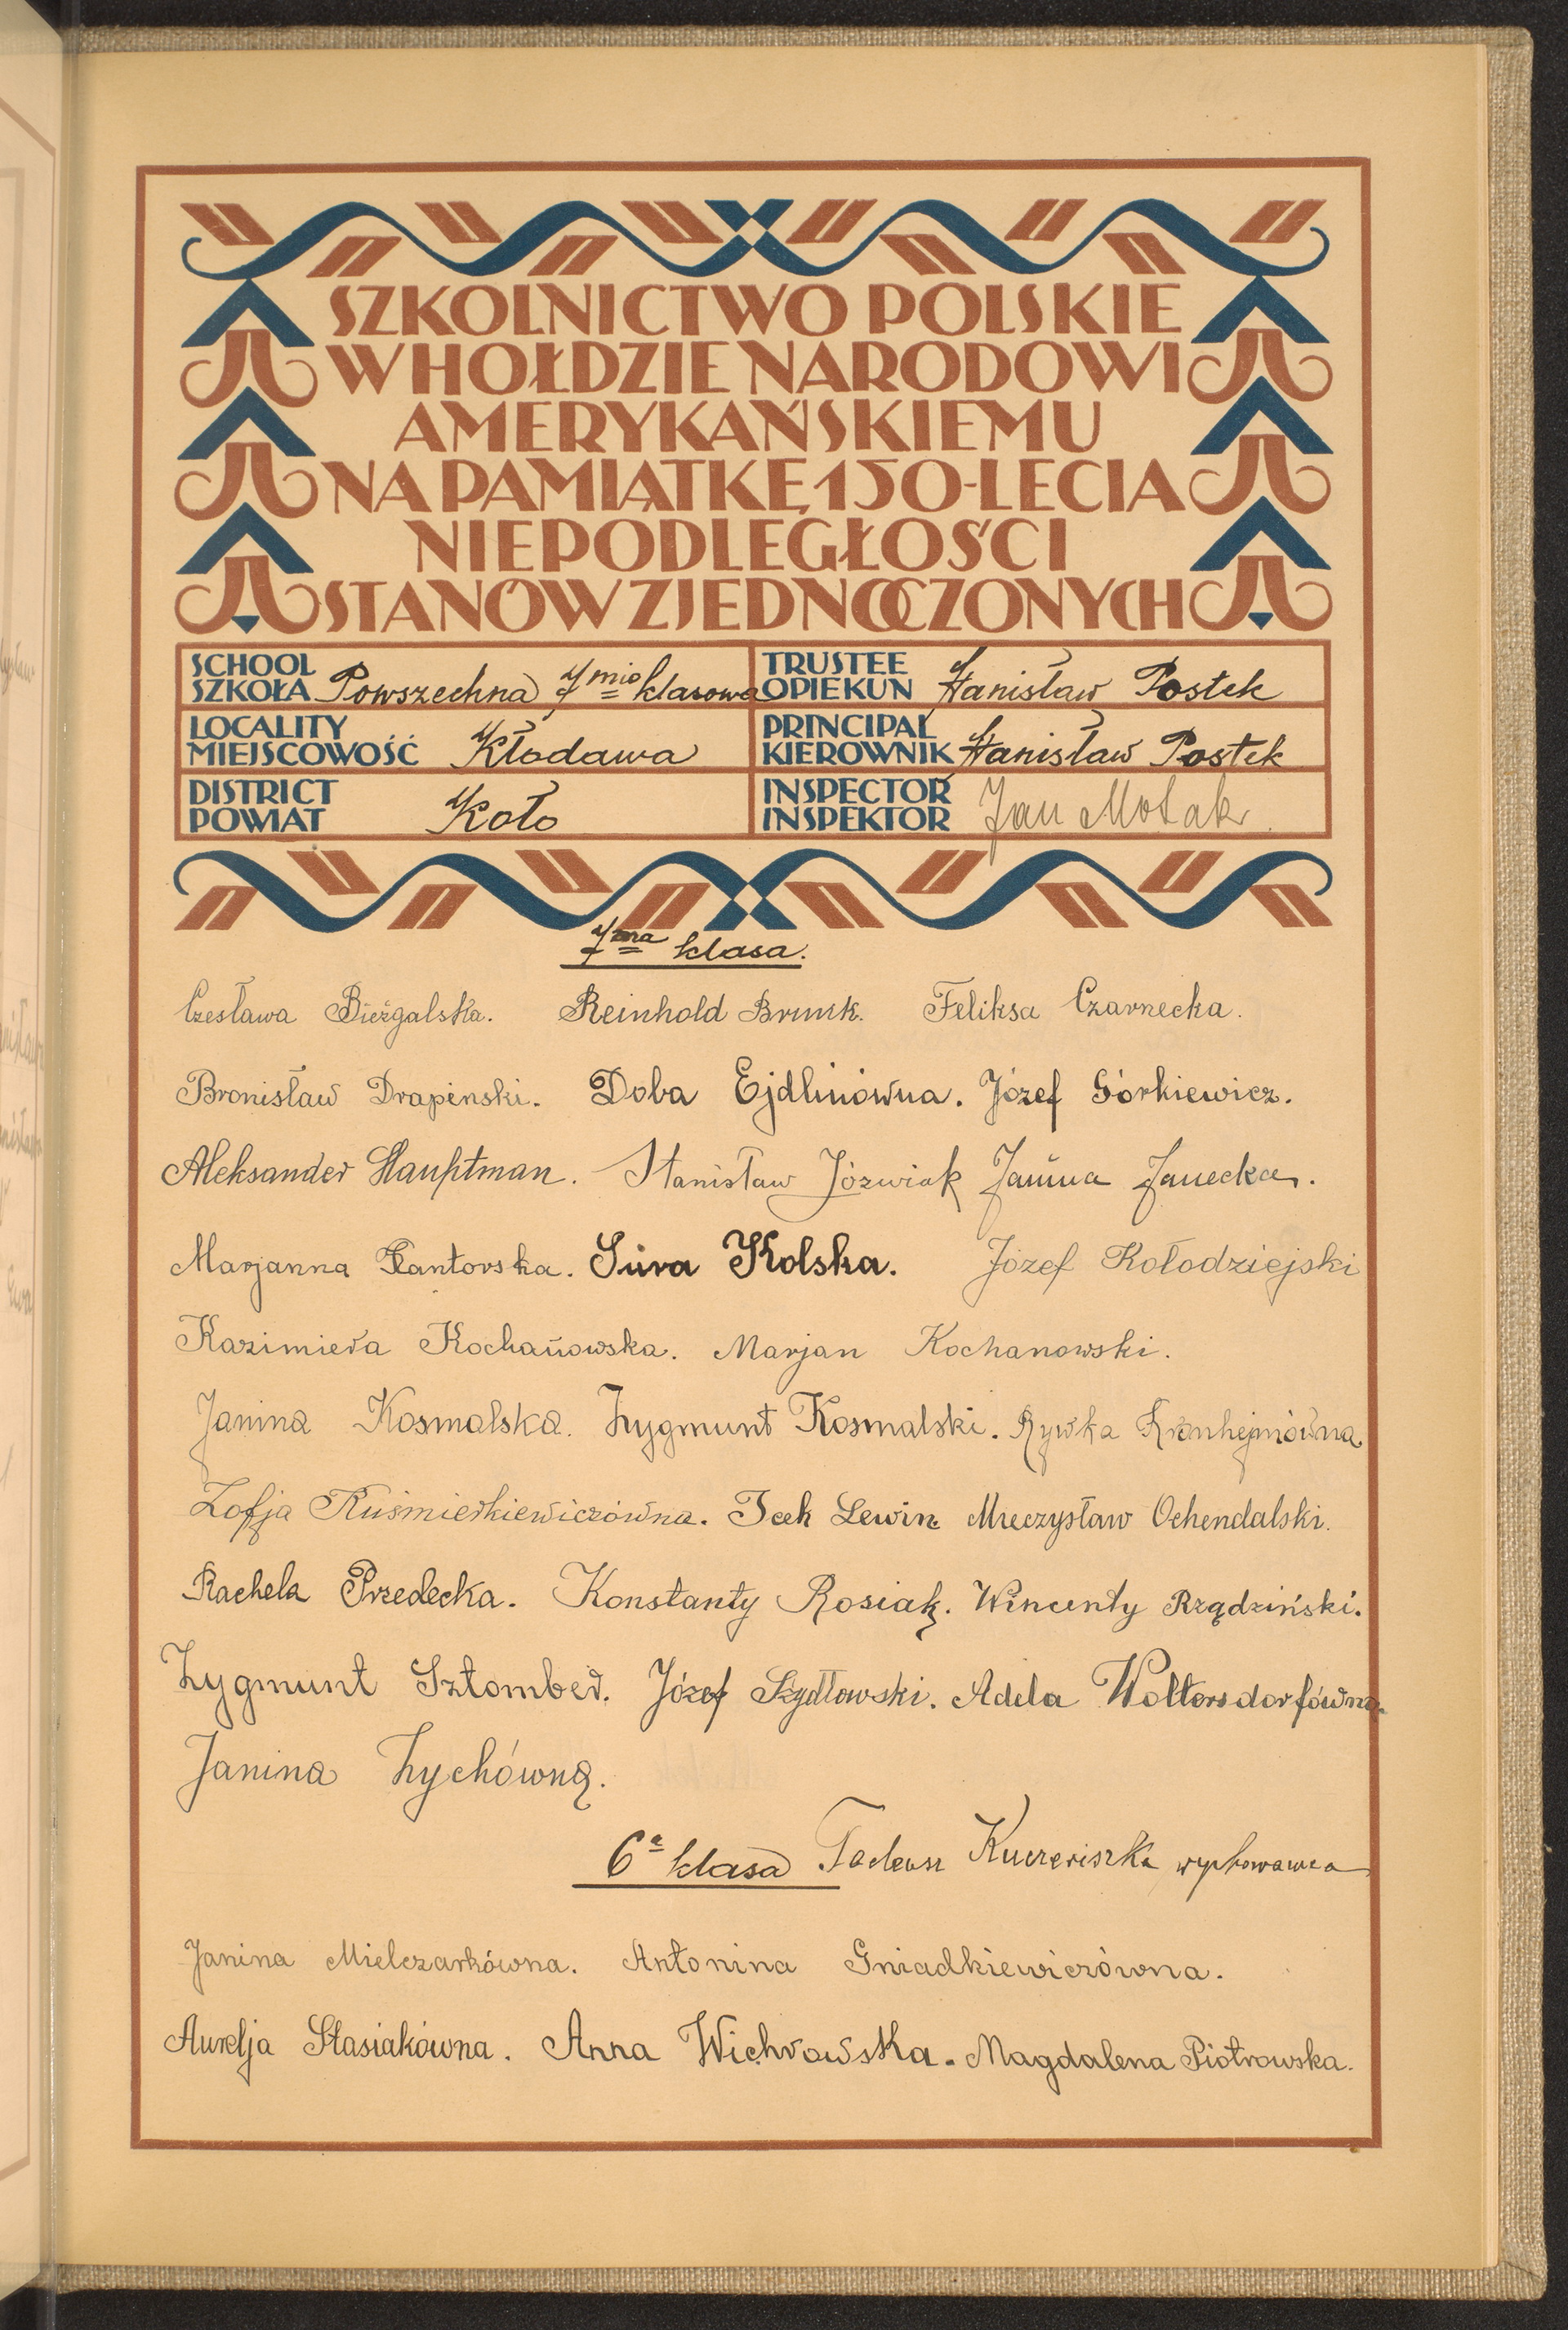 SZKOLNICTWO POLSKIE
W HOŁDZIE NARODOWI
AMERYKAŃSKIEMU
NA PAMIĄTKĘ 150-LECIA
NIEPODLEGŁOŚCI
STANÓW ZJEDNOCZONYCH
SCHOOL
SZKOŁA Powszechna 7mio klasowa
TRUSTEE
OPIEKUN Stanisław Postek
LOCALITY
MIEJSCOWOŚĆ Kłodawa
PRINCIPAL
KIEROWNIK Stanisław Postek
DISTRICT
POWIAT Koło
INSPECTOR
INSPEKTOR Jan
7ma klasa.
Czesława Bieżgalska. Reinhold Feliksa Czarnecka.
Bronisław Drapinski. Doba Ejdlinówna. Józef Górkiewicz.
Aleksander Hauptman. Stanisław Józwiak Janina Janecka.
Marjanna Kantorska. Sura Kolska. Józef Kołodziejski
Kazimiera Kochanowska. Marjan Kochanowski.
Janina Kosmalska. Zygmunt Kosmalski. Rywka Kronhejmówna
Zofja Kuśmierkiewiczówna. Icek Lewin Mieczysław Ochendalski.
Rachela Przedecka. Konstanty Rosiak. Wincenty Rządziński.
Zygmunt Sztomber. Józef Szydłowski. Adela Woltersdorfówna.
Janina Zychówna.
6a klasa Tadeusz wychowawca
Janina Mielczarkówna. Antonina Gniadkiewiczówna.
Aurelja Stasiakówna. Anna Wichrowska. Magdalena Piotrowska.